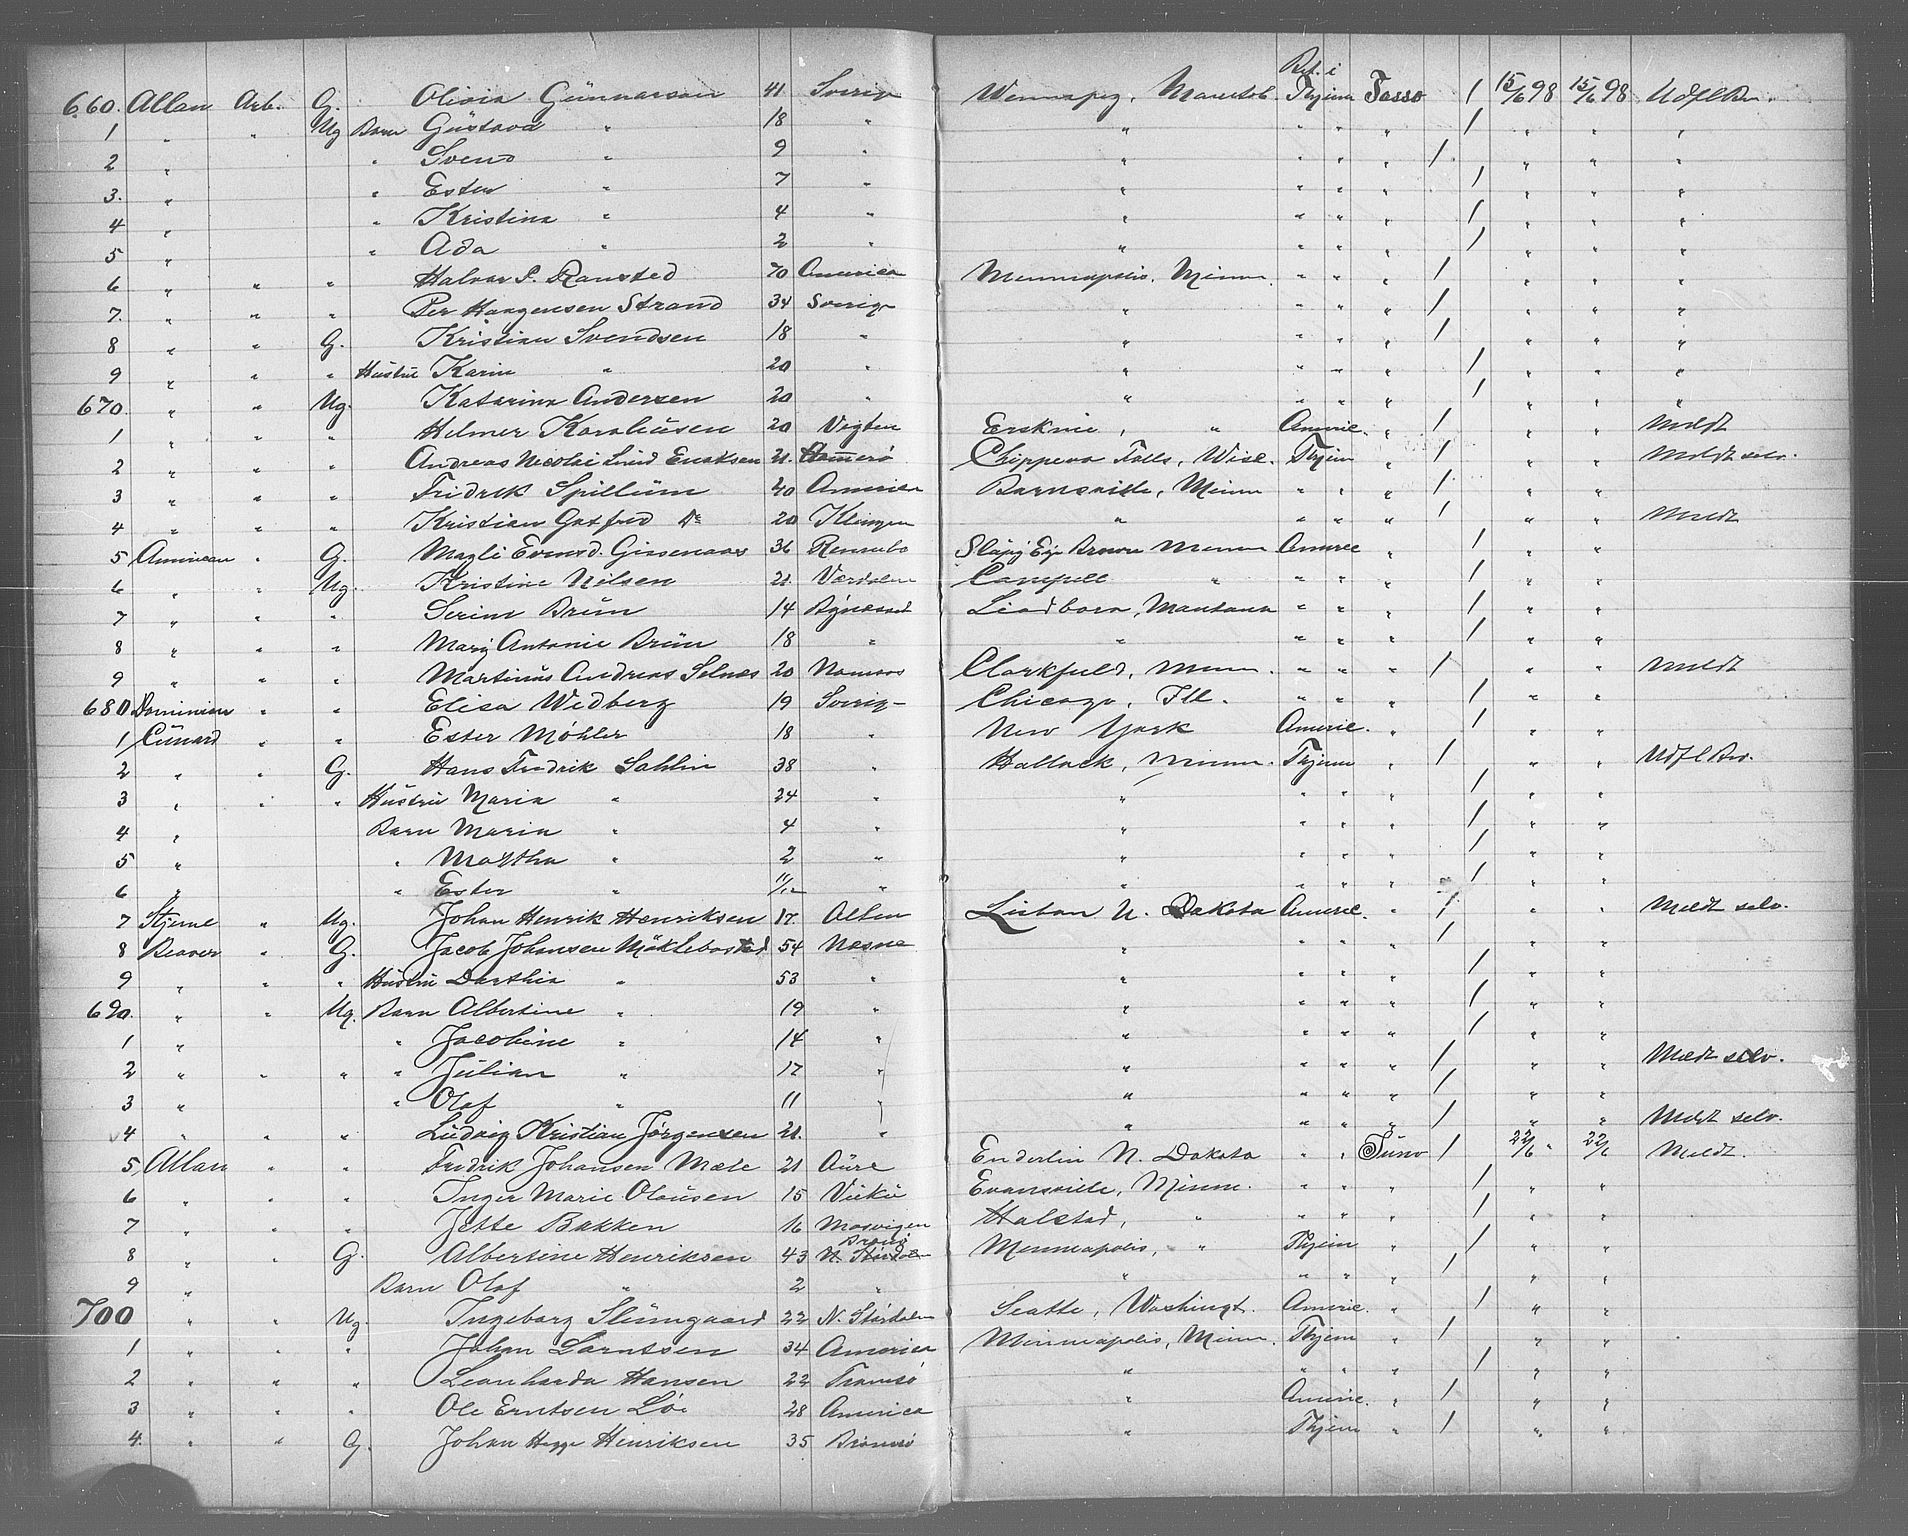 Bet. i
660. Allan Arb. G. Olivia Gunnarson 41 Sverige Winnapeg, Manitob. Thjem Tasso 1 15/6 98 15/6 98 Udfl Bev.
1 " " Ug Barn Gustava " 18 " " " " " 1 " " "
2 " " Svend " 9 " " " " " 1 " " "
3. " " Ester " 7 " " " " " 1 " " "
4 " " Kristina " 4 " " " " " 1 " " "
5 " " Ada " 2 " " " " " 1 " " "
6 " " " Halvor P. Ramsted 70 America Minneapolis, Minn. " " " 1 " " "
7. " " " Per Haagensen Strand 34 Sverige " " " " 1 " " "
8 " " G. Kristian Svendsen 18 " " " " " 1 " " "
9 " " " Hustru Karin " 20 " " " " " 1 " " "
670. " " Ug. Katarina Andersen 20 " " " " " 1 " " "
1 " " " Helmer Karolinsen 20 Vigten Erskine, " Americ. " 1 " " Meldt
2 " " " Andreas Nicolai Lind Eriksen 21. Hammerø Chippeva Falls, Wisc. Thjem " 1 " " Meldt selv.
3 " " " Fridrik Spillum 40 America Barnsville, Minn " " " 1 " "
4 " " " Kristian Gotfred Do 20 Klingen " " " " 1 " " Meldt
5 American " G. Magli Evensd. Gissenaas 36 Rennebo Slepy Eye Brown Minn Americ " 1 " "
6 " " Ug. Kristine Nilsen 21. Værdalen Campell " " " " 1 " "
7 " " " Serine Brün 14 Bynesset Liedborn, Mantana " " " 1 " "
8 " " " Mary Antonie Brün 18 " " " " " 1 " "
9 " " " Martinus Andreas Selnes 20 Namsos Clarkfield, Minn. " " " 1 " " Meldt
680 Dominion " " Elisa Wedberg 19 Sverig- Chicago, Ill. " " " 1 " "
1 Cunard " " Ester Möhler 18 " New York Americ. " 1 " "
2 " " G. Hans Fredrik Sahlin 38 " Hallock, Minn. Thjem " 1 " " Udfl Bev.
3 " " " Hustru Maria " 24 " " " " " 1 " "
4 " Barn Maria " 4 " " " " " 1 " "
5 " " Martha " 2 " " " " " 1 " "
6 " " Ester " 11/12 " " " " " 1 " "
7 Stjerne " Ug. Johan Henrik Henriksen 17. Alten Lisbon N. Dakota Americ. " 1 " " Meldt selv.
8 Beaver " G. Jacob Johansen Möklebostad 54 Næsne " " " " 1 " "
9 " " " Hustru Dorthia " 53 " " " " " 1 " "
690. " " Ug. Barn Albertine " 19 " " " " " 1 " "
1 " " Jacobine " 14 " " " " " 1 " "
2 " " " " Julian " 17 " " " " " 1 " " Meldt selv.
3 " " Olaf " 11 " " " " " 1 " "
4 " " " Ludvig Kristian Jørgensen 21. " " " " " 1 " " Meldt selv.
5 Allan " " Fridrik Johansen Mæle 21 Aure Enderlin N. Dakota " " Juno 1 22/6 " 22/6 Meldt.
6 " " " Inger Marie Olausen 15 Vukü Evansville, Minn. " " " 1 " "
7 " " " Jette Bakken 16 Mosvigen Halstad, " " " " 1 " "
8 " " G. Albertine Henriksen 43 Brønø N. Størdalen Minneapolis, " Thjem " 1 " "
9 " Barn Olaf " 2 " " " " " 1 " "
700 " " Ug. Ingeborg Slümgaard 22 N. Stördalen Seatte, Washingt. Americ. " 1 " "
1 " " " Johan Larntsen 34 America Minneapolis, Minn. Thjem " 1 " "
2 " " " Leonharda Hansen 22 Tromsö " " " " 1 " "
3 " " " Ole Erntsen Lø. 28 America " Americ. " 1 " "
4. " " G. Johan Hegge Henriksen 35 Brønnø " Thjem " 1 " "